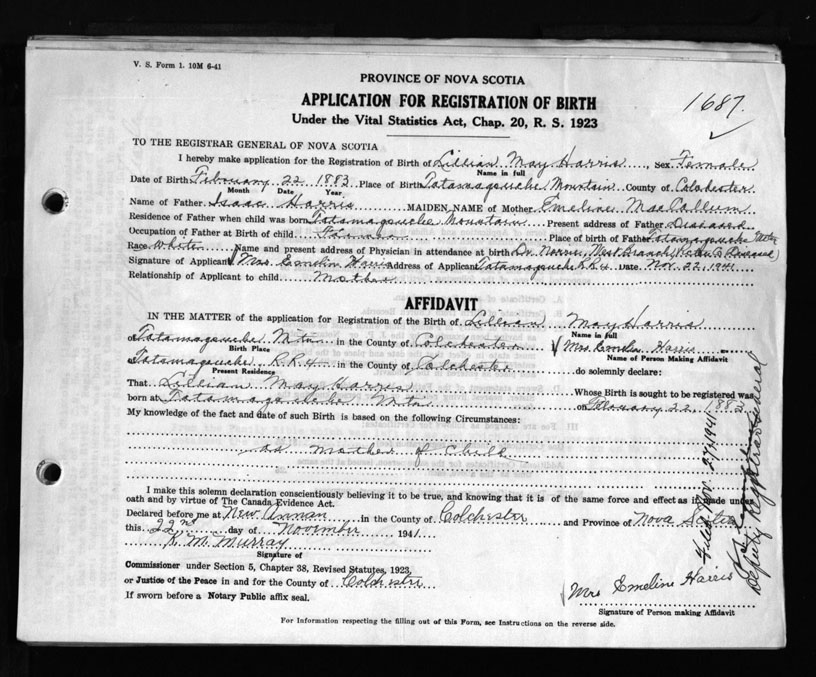 V. S. Form 1. 10M 6-41
PROVINCE OF NOVA SCOTIA
1687.
APPLICATION FOR REGISTRATION OF BIRTH
Under the Vital Statistics Act, Chap. 20, R. S. 1923
TO THE REGISTRAR GENERAL OF NOVA SCOTIA
I hereby make application for the Registration of Birth of Lillian May Harris, Sex Female
Name in full
Date of Birth February 22 1883 Place of Birth Tatamagouche Mountain County of Colchester
Month Date Year
Name of Father Isaac Harris MAIDEN NAME of Mother Emeline MacCallum
Residence of Father when child was born Tatamagouche Mountain Present address of Father Diseased
Occupation of Father at Birth of child Farmer Place of birth of Father Tatamagouche Mtn
Race White Name and present address of Physician in attendance at birth Dr. Norrie, West Branch, Diseased)
Signature of Applicant Mrs. Emelin Harris Address of Applicant Tatamagouche R.R.4 Date Nov. 22, 1941
Relationship of Applicant to child Mother
AFFIDAVIT
IN THE MATTER of the application for Registration of the Birth of Lillian May Harris
Name in full
of Tatamagouche Mtn in the County of Colchester Mrs Emelin Harris
Birth Place Name of Person Making Affidavit
of Tatamagouche R.R.4 in the County of Colchester do solemnly declare:
Present Residence
That Lillian May Harris Whose Birth is sought to be registered was
born at Tatamagouche Mtn on February 22, 1883
My knowledge of the fact and date of such Birth is based on the following Circumstances:
as mother of Child
I make this solemn declaration conscientiously believing it to be true, and knowing that it is of the same force and effect as if made under
oath and by virtue of The Canada Evidence Act.
Declared before me at New Annan in the County of Colchester and Province of Nova Scotia
this 22nd day of November 1941
M. Murray
Signature of
Commissioner under Section 5, Chapter 38, Revised Statutes, 1923,
or Justice of the Peace in and for the County of Colchester
If sworn before a Notary Public affix seal.
Mrs Emeline Harris
Signature of Person making Affidavit
For Information respecting the filling out of this Form, see Instructions on the reverse side.
Filed Nov. 27, 1941
Deputy Registrar General